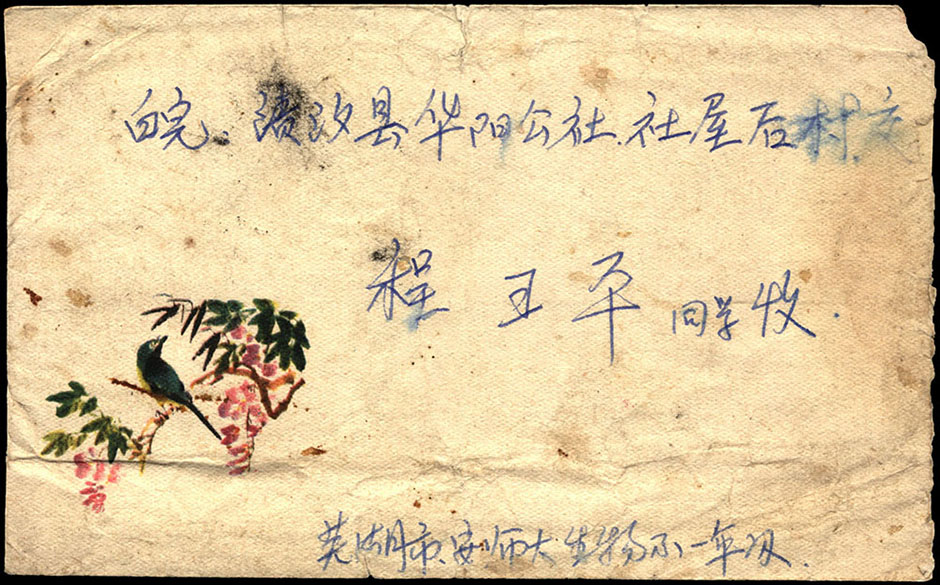 皖、绩溪县华阳公社.社屋后村.交
程王平同学收.
芜湖市.安师大生物系一年级.